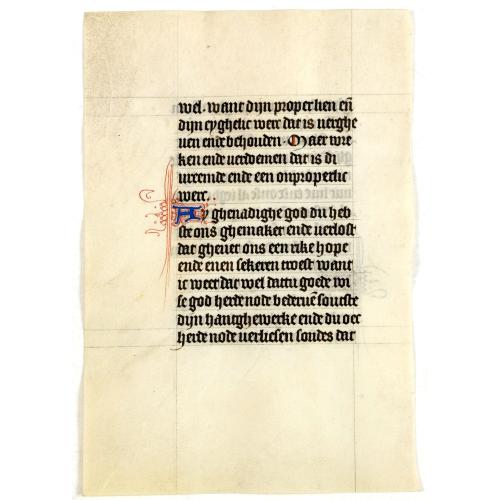 wel. want dijn properlien en̄
dijn eyghelic werc dat is verghe
uen ende behouden. Maer wre
ken ende verdoemen dat is di
vreemde ende een onproperlic
werc.
Ay ghenadighe god du heb
ste ons ghemaket ende verlost
dat gheuet ons een rike hope
ende enen sekeren troest want
ic weet dat wel dattu goede wi
se god herde node bederuē soudste
dijn hantghewerke ende du oec
herde node verliesen soudes dat